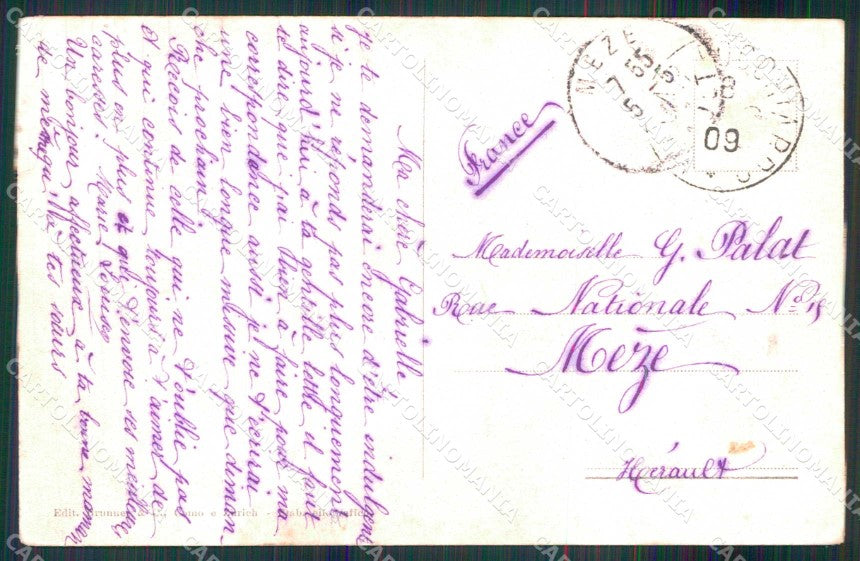 Ma chère Gabrielle
je te demanderai encore d'être indulgente
si je ne réponds pas plus longuement
aujourd'hui à ta gentille lettre il faut
te dire que j'ai à faire pour me
correspondance aussi je ne t'écrirai
bien longue que demain
che prochain.
Reçois de celle qui ne t'oublie pas
et qui continue toujours à t'aimer de
plus en plus et qui t'envoie ses meilleures
caresses Marie Louise
Un bonjour affectueux à ta bonne maman
ne manque tes sœurs
France
Mademoiselle G. Palat
Rue Nationale No 15
Mèze
Hérault
MEZE
5 7
09
Edit. Brunner & C., Como e Zurich
CARTOLINOMANIA